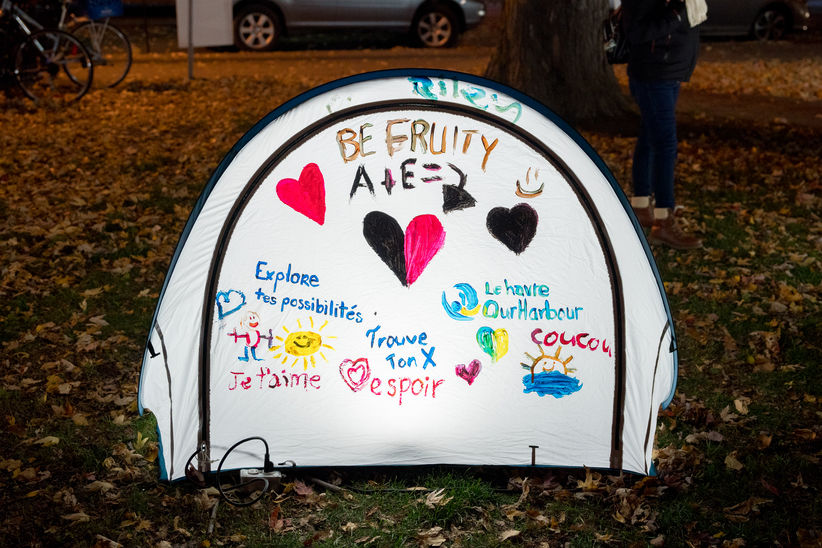 BE FRUITY
A+E=
Explore
tes possibilités
Le havre
OurHarbour
coucou
Trouve
Ton X
Je t'aime
espoir